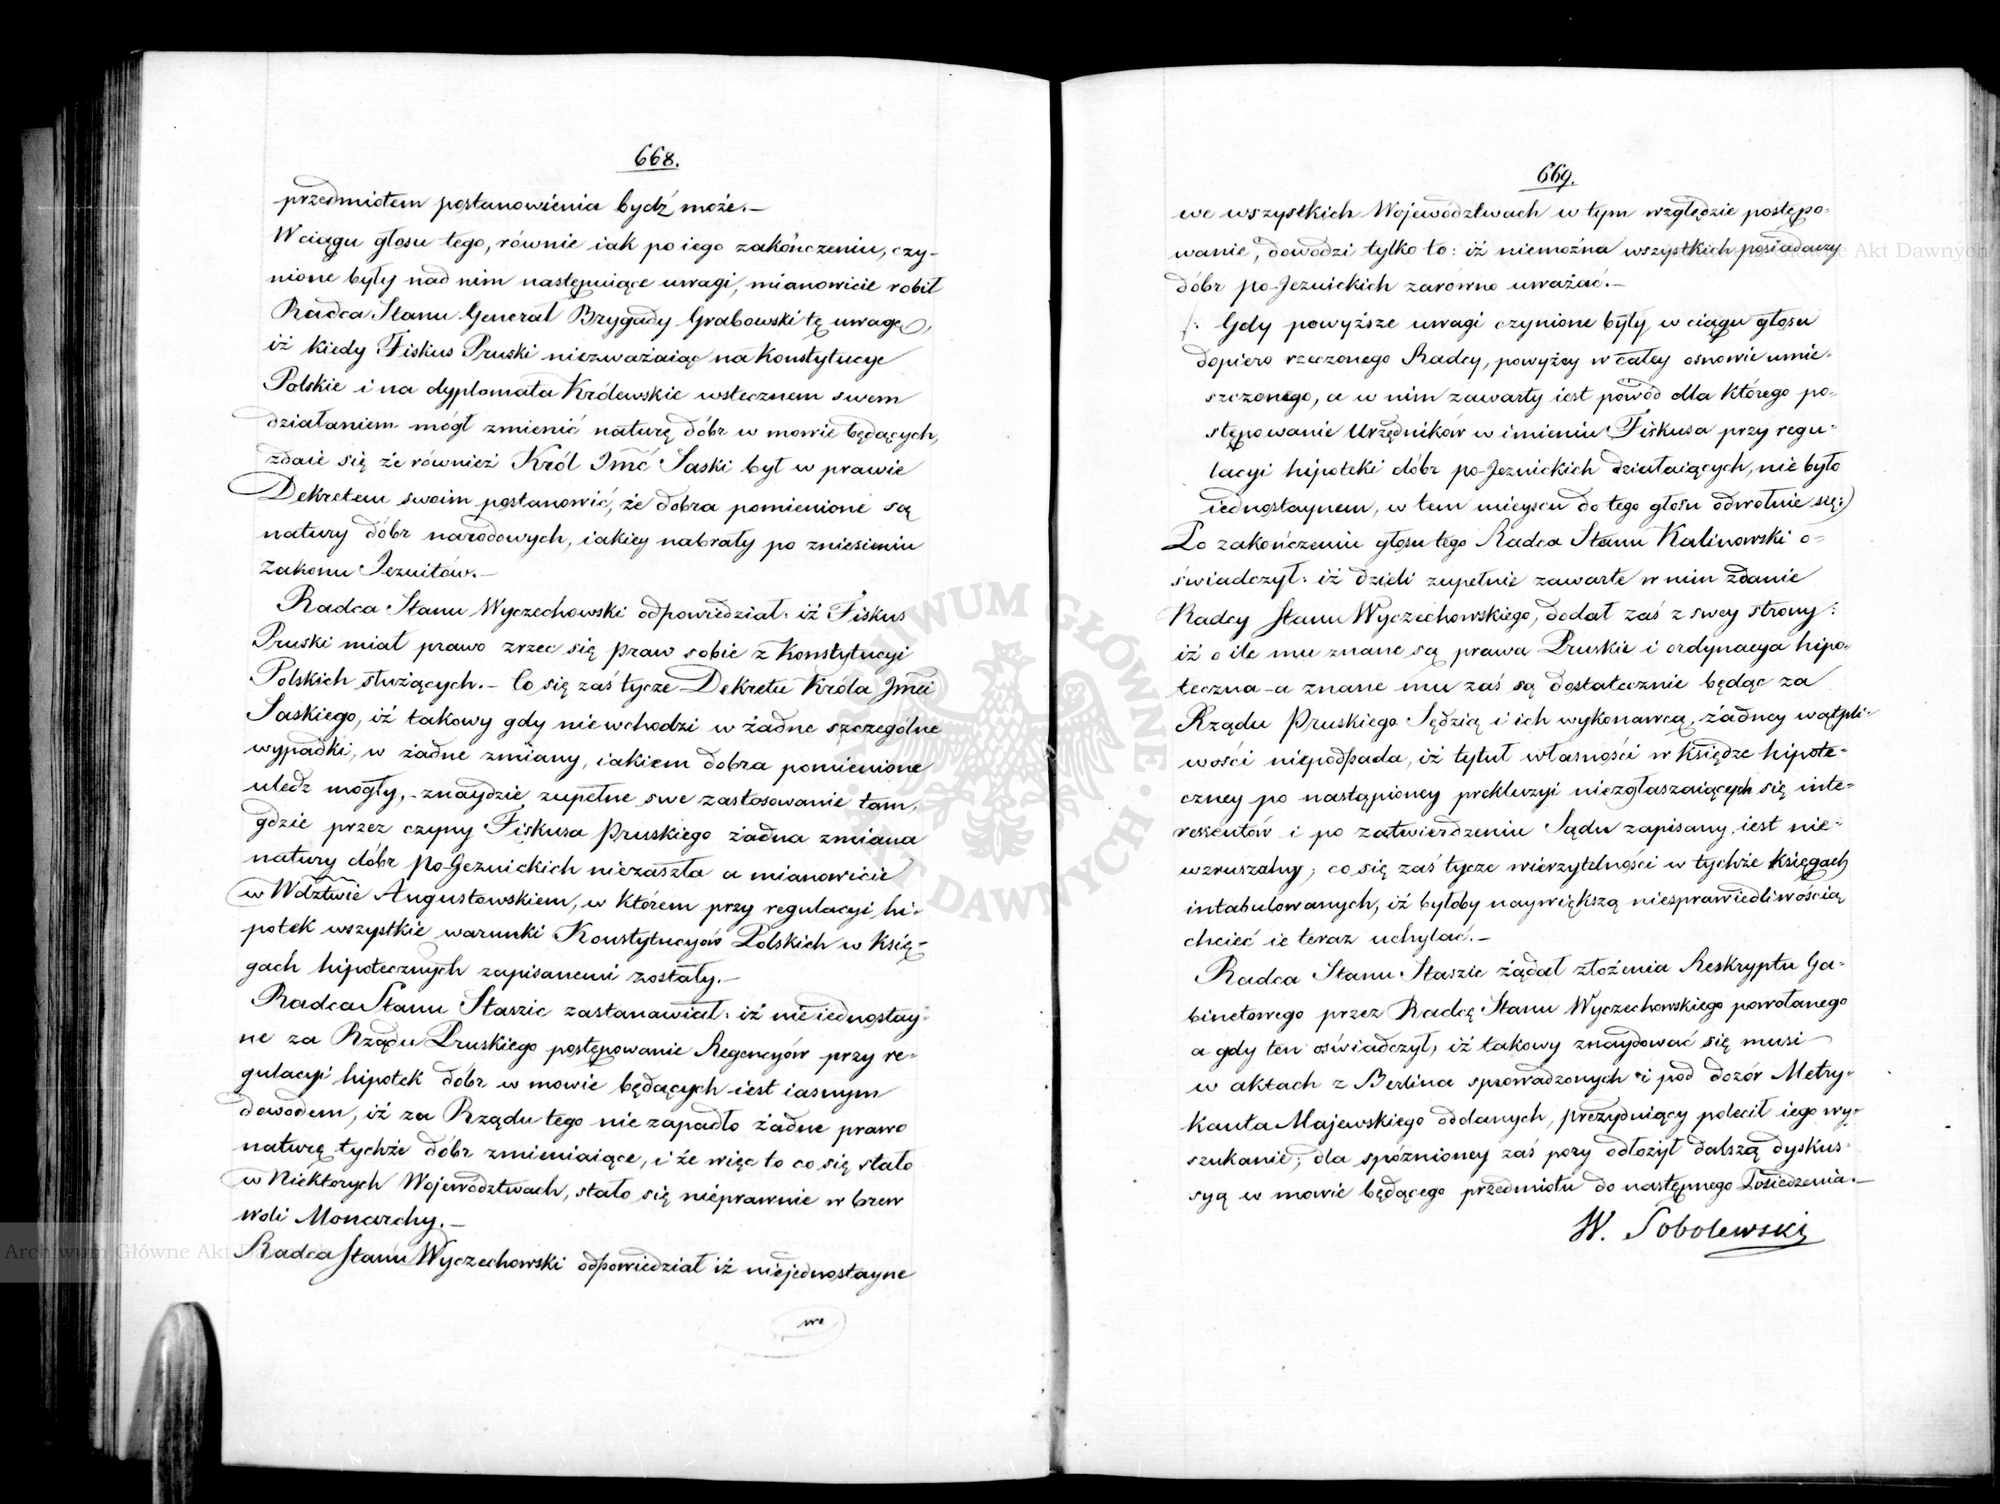 668.
przedmiotem postanowienia bydź może.—
W ciągu głosu tego, równie iak po iego zakończeniu, czy-
nione były nad nim następuiące uwagi, mianowicie robił
Radca Stanu Generał Brygady Grabowski tę uwagę,
iż kiedy Fiskus Pruski niezważaiąc na Konstytucye
Polskie i na dyplomata Królewskie wstecznem swem
działaniem mógł zmienić naturę dóbr w mowie będących,
zdaie się że również Król Jmć Saski był w prawie
Dekretem swoim postanowić, że dobra pomienione są
natury dóbr narodowych, iakiey nabrały po zniesieniu
Zakonu Jezuitów.—
Radca Stanu Wyczechowski odpowiedział: iż Fiskus
Pruski miał prawo zrzec się praw sobie z Konstytucyi
Polskich służących.— Co się zaś tycze Dekretu Króla Jmci
Saskiego, iż takowy gdy niewchodzi w żadne szczególne
wypadki, w żadne zmiany, iakiem dobra pomienione
uledz mogły,- znaydzie zupełne swe zastosowanie tam,
gdzie przez czyny Fiskusa Pruskiego żadna zmiana
natury dóbr po-Jezuickich niezaszła a mianowicie
w Wdztwie Augustowskiem, w którem przy regulacyi hi-
potek wszystkie warunki Konstytucyów Polskich w księ-
gach hipotecznych zapisanemi zostały.—
Radca Stanu Staszic zastanawiał: iż nieiednostay-
ne za Rządu Pruskiego postępowanie Regencyów przy re-
gulacyi hipotek dóbr w mowie będących iest iasnym
dowodem, iż za Rządu tego nie zapadło żadne prawo
naturę tychże dóbr zmieniaiące, i że więc to co się stało
w Niektorych Województwach, stało się nieprawnie w brew
woli Monarchy.—
Radca Stanu Wyczechowski odpowiedział iż niejednostayne
we
669.
we wszystkich Województwach w tym względzie postępo-
wanie, dowodzi tylko to: iż niemożna wszystkich posiadaczy
dóbr po-Jezuickich zarówno uważać.—
/: Gdy powyższe uwagi czynione były w ciągu głosu
dopiero rzeczonego Radcy, powyżey w całey osnowie umie-
szczonego, a w nim zawarty iest powód dla którego po-
stępowanie Urzędników w imieniu Fiskusa przy regu-
lacyi hipoteki dóbr po-Jezuickich działaiących, nie było
iednostaynem, w tem mieyscu do tego głosu odwołnie się:)
Po zakończeniu głosu tego Radca Stanu Kalinowski o-
świadczył: iż dzieli zupełnie zawarte w nim zdanie
Radcy Stanu Wyczechowskiego, dodał zaś z swey strony:
iż o ile mu znane są prawa Pruskie i ordynacya hipo-
teczna - a znane mu zaś są dostatecznie będąc za
Rządu Pruskiego Sędzią i ich wykonawcą, żadney wątpli-
wości niepodpada, iż tytuł własności w księdze hipote-
czney po nastąpioney prekluzyi niezgłaszaiących się inte-
ressentów i po zatwierdzeniu Sądu zapisany, iest nie-
wzruszalny; co się zaś tycze wierzytelności w tychże księgach
intabulowanych, iż byłoby naywiększą niesprawiedliwością
chcieć ie teraz uchylać.—
Radca Stanu Staszic żądał złożenia Reskryptu Ga-
binetowego przez Radcę Stanu Wyczechowskiego powołanego
a gdy ten oświadczył, iż takowy znaydować się musi
w aktach z Berlina sprowadzonych i pod dozór Metry-
kanta Majewskiego oddanych, prezyduiący polecił iego wy-
szukanie; dla spóznioney zaś pory odłożył dalszą dyskus-
syą w mowie będącego przedmiotu do następnego Posiedzenia.—
W. Sobolewski
ARCHIWUM GŁÓWNE AKT DAWNYCH
Archiwum Główne Akt Dawnych
Główne Akt Dawnych